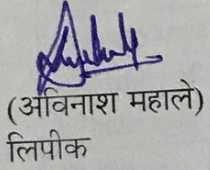 (अविनाश महाले)
लिपीक